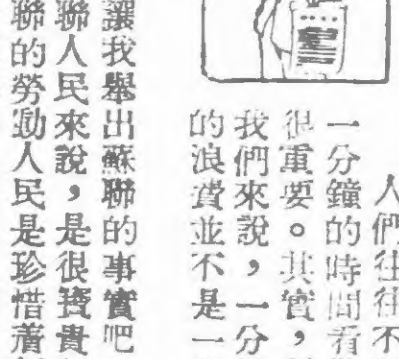 人們往往不
一分鐘的時間看
很重要。其實，
我們來說，一分
的浪費並不是一
讓我舉出蘇聯的事實吧
聯人民來說，是很寶貴
聯的勞動人民是珍惜着